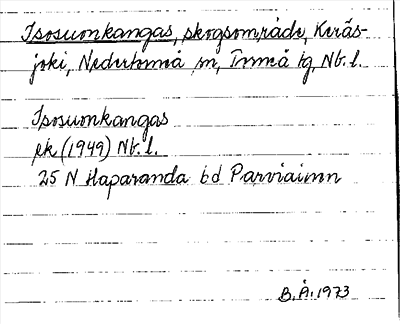 Isosuonkangas, skogsområde, Keräs-
joki, Nedertorneå sn, Torneå tg, Nb. l.
Isosuonkangas
ek (1949) Nb. l.
25 N Haparanda bd Parviainen
B. Å. 1973